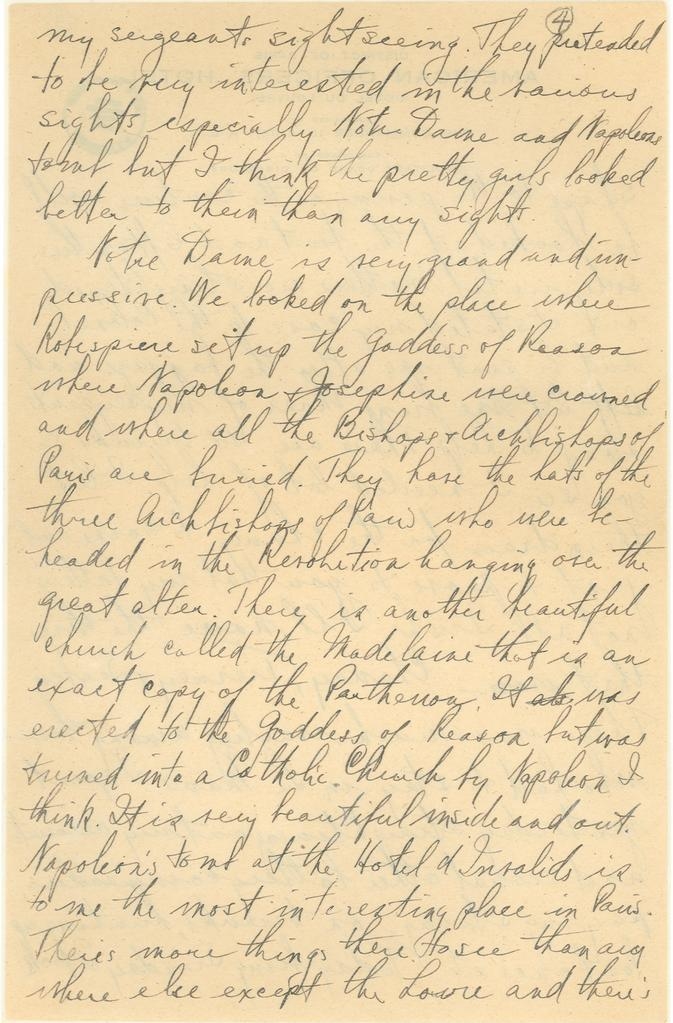 4
my sergeants sightseeing. They pretended
to be very interested in the various
sights especially Notre Dame and Napoleons
tomb but I think the pretty girls looked
better to them than any sights.
Notre Dame is very grand and im-
pressive. We looked on the place where
Robespiere set up the Goddess of Reason
where Napoleon & Josephine were crowned
and where all the Bishops & Archbishops of
Paris are buried. They have the hats of the
three Archbishops of Paris who were be-
headed in the Revolution hanging over the
great alter. There is another beautiful
church called the Madelaine that is an
exact copy of the Parthenon. It was
erected to the Goddess of Reason but was
turned into a Catholic Church by Napoleon I
think. It is very beautiful inside and out.
Napoleon's tomb at the Hotel d Invalids is
to me the most interesting place in Paris.
Theres more things there to see than any
where else except the Louvre and there's